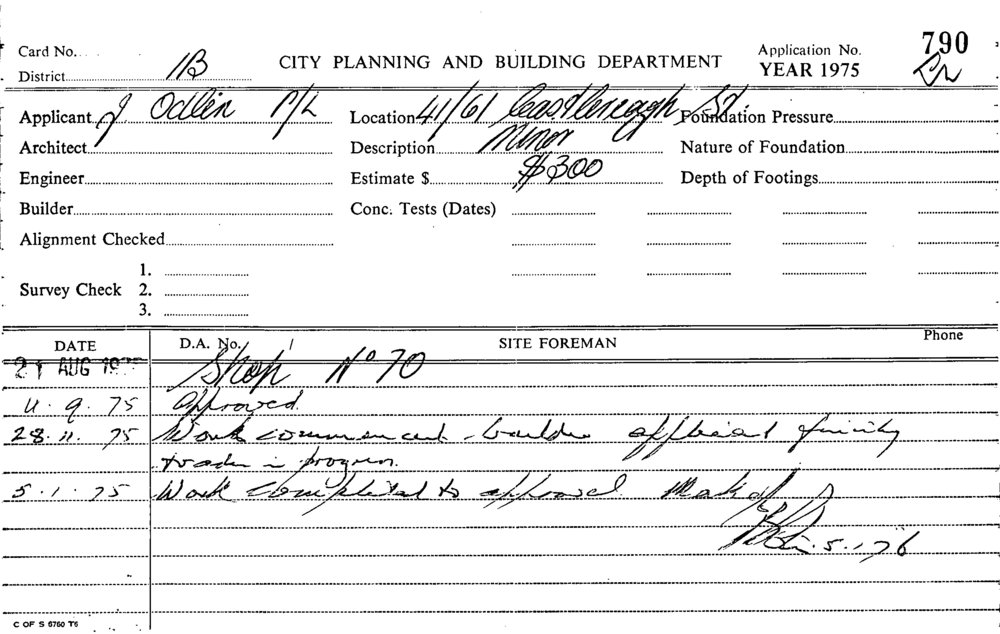 Card No.
790
Application No.
District 1B
CITY PLANNING AND BUILDING DEPARTMENT
YEAR 1975
Applicant J Odlin P/L
Location 41/61 Castlereagh St.
Foundation Pressure
Architect
Description Minor
Nature of Foundation
Engineer
Estimate $ $300
Depth of Footings
Builder
Conc. Tests (Dates)
Alignment Checked
1.
Survey Check 2.
3.
DATE
D.A. No.
SITE FOREMAN
Phone
21 AUG 197
Shop No 70
11.9.75 Approved.
28.11.75 Work commenced builder
trades in progress.
5.1.75 Work completed to approval
5.1.76
C OF S 6760 T6